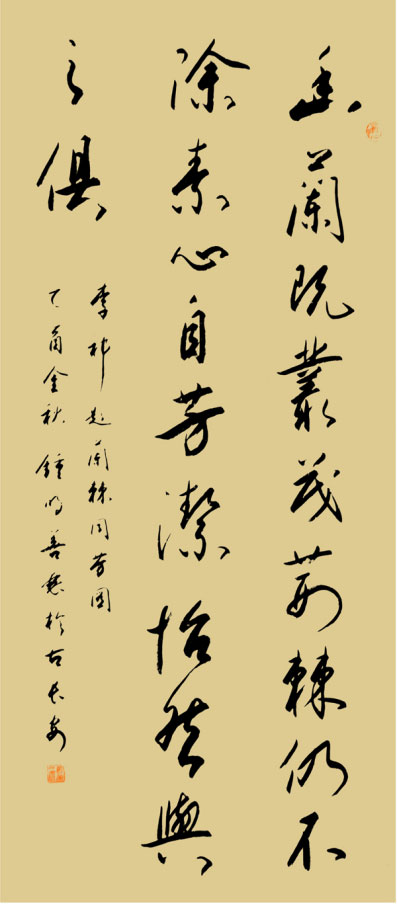 幽蘭既叢茂荊棘仍不
除素心自芳潔怡然與
之俱
李祁題蘭棘同芳圖
乙酉金秋鍾明善書於古長安